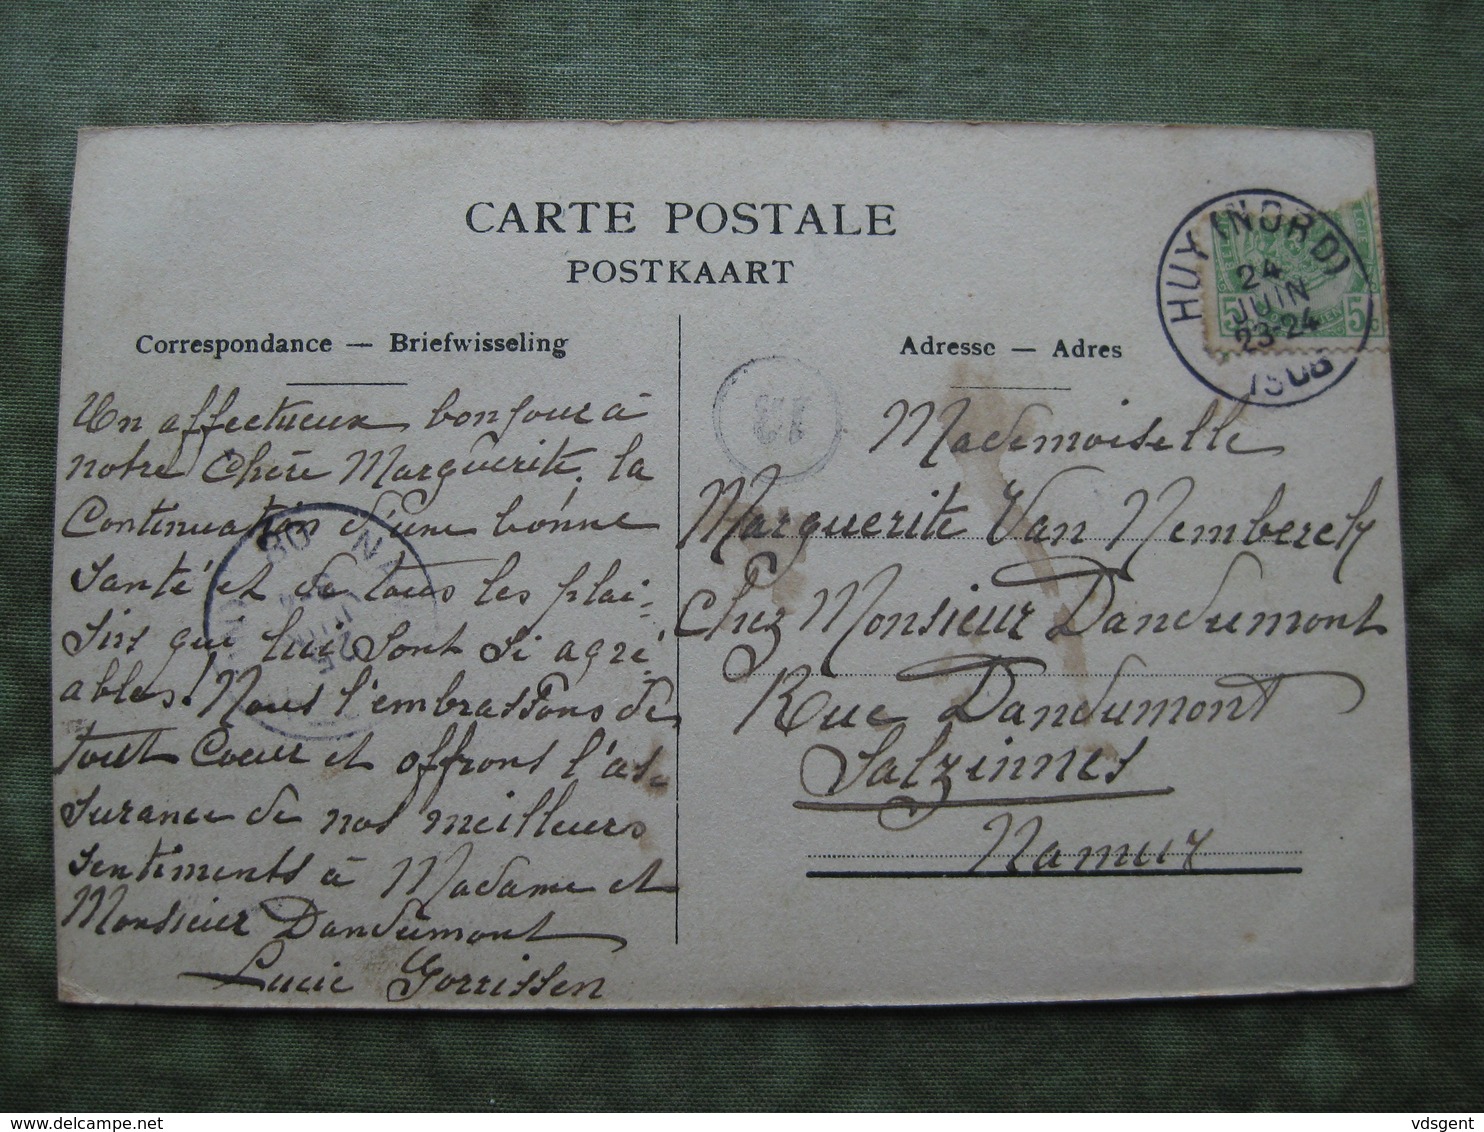 CARTE POSTALE
POSTKAART
Correspondance — Briefwisseling
Un affectueux bonjour à
notre Chère Marguerite, la
Continuation d'une bonne
Santé et de tous les plai-
sirs qui lui sont si agré-
ables! Nous l'embrassons de
tout Coeur et offrons l'as-
surance de nos meilleurs
sentiments à Madame et
Monsieur Dandumont
Lucie Gorrissen
Adresse — Adres
HUY (NORD)
24
JUIN
23-24
1908
Mademoiselle
Marguerite Van Nemberck
Chez Monsieur Dandumont
Rue Dandumont
Salzinnes
Namur
delcampe.net
vdsgent